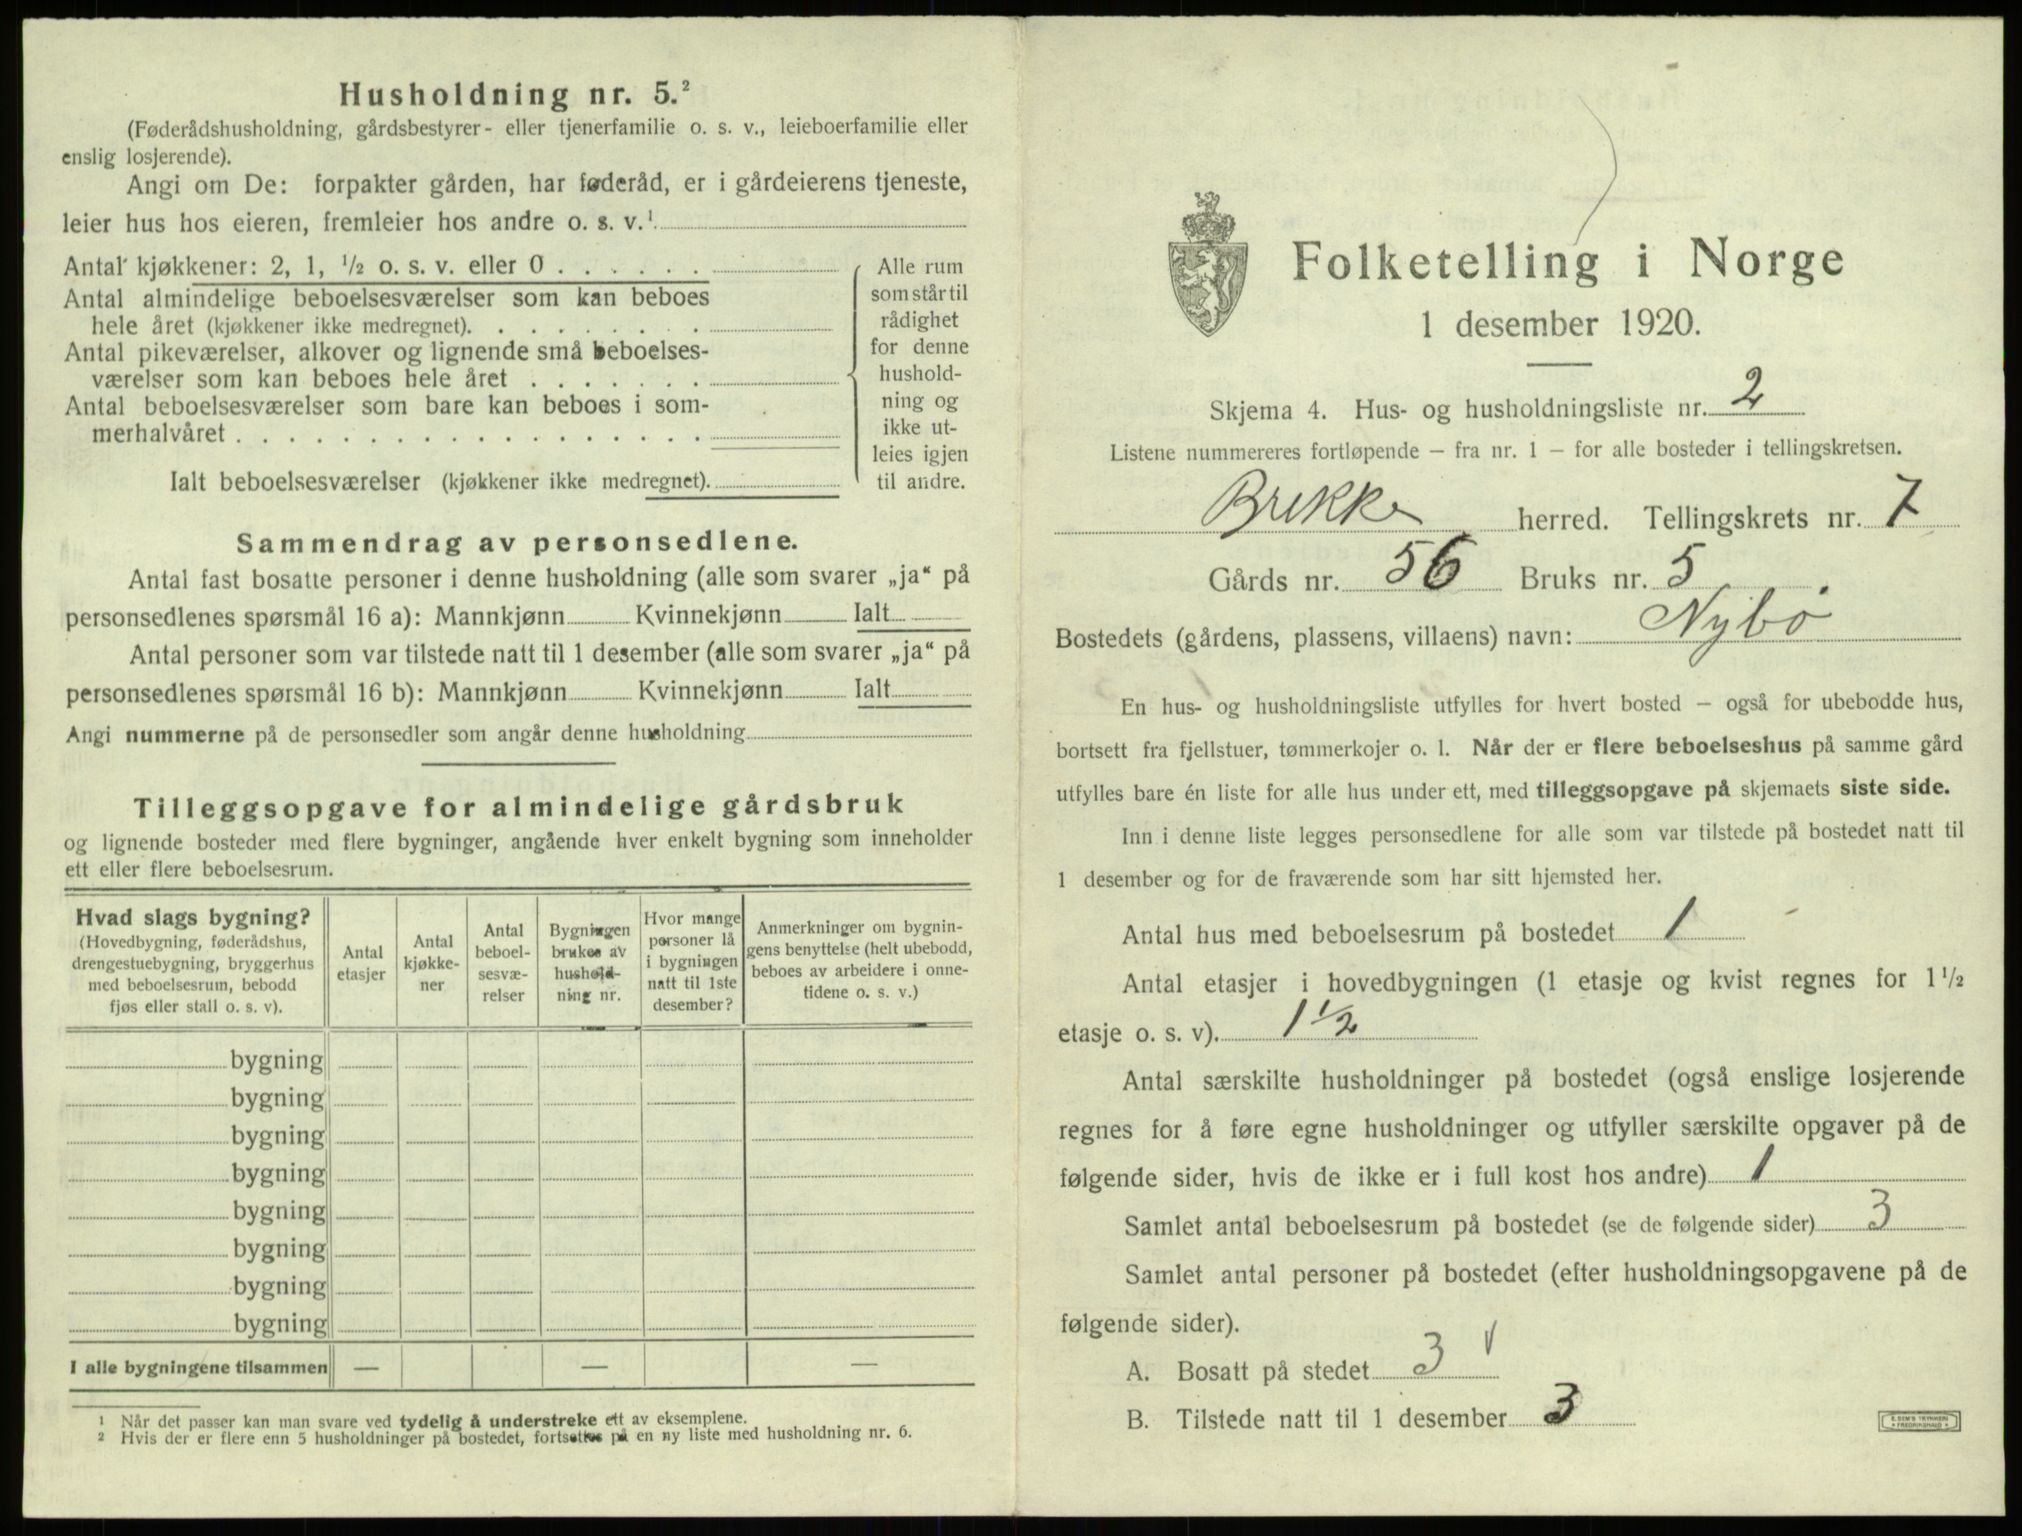 Husholdning nr. 5.²
(Føderådshusholdning, gårdsbestyrer- eller tjenerfamilie o. s. v., leieboerfamilie eller
enslig losjerende).
Angi om De: forpakter gården, har føderåd, er i gårdeierens tjeneste,
leier hus hos eieren, fremleier hos andre o. s. v.¹
Antal kjøkkener: 2, 1, ½ o. s. v. eller 0 . . . . . .
Antal almindelige beboelsesværelser som kan beboes
hele året (kjøkkener ikke medregnet). . . . . . . . .
Antal pikeværelser, alkover og lignende små beboelses-
værelser som kan beboes hele året . . . . . . .
Antal beboelsesværelser som bare kan beboes i som-
merhalvåret . . . . . . . . . . . . . . . . . .
Ialt beboelsesværelser (kjøkkener ikke medregnet).
Alle rum
som står til
rådighet
for denne
hushold-
ning og
ikke ut-
leies igjen
til andre.
Sammendrag av personsedlene.
Antal fast bosatte personer i denne husholdning (alle som svarer „ja“ på
personsedlenes spørsmål 16 a): Mannkjønn Kvinnekjønn Ialt
Antal personer som var tilstede natt til 1 desember (alle som svarer „ja“ på
personsedlenes spørsmål 16 b): Mannkjønn Kvinnekjønn Ialt
Angi nummerne på de personsedler som angår denne husholdning
Tilleggsopgave for almindelige gårdsbruk
og lignende bosteder med flere bygninger, angående hver enkelt bygning som inneholder
ett eller flere beboelsesrum.
Hvad slags bygning?
(Hovedbygning, føderådshus,
drengestuebygning, bryggerhus
med beboelsesrum, bebodd
fjøs eller stall o. s. v).
Antal
etasjer
Antal
kjøkke-
ner
Antal
beboel-
sesvæ-
relser
Bygningen
brukes av
hushold-
ning nr.
Hvor mange
personer lå
i bygningen
natt til 1ste
desember?
Anmerkninger om bygnin-
gens benyttelse (helt ubebodd,
beboes av arbeidere i onne-
tidene o. s. v.)
bygning
bygning
bygning
bygning
bygning
bygning
bygning
bygning
I alle bygningene tilsammen — — —
¹ Når det passer kan man svare ved tydelig å understreke ett av eksemplene.
² Hvis der er flere enn 5 husholdninger på bostedet, fortsettes på en ny liste med husholdning nr. 6.
Folketelling i Norge
1 desember 1920.
Skjema 4. Hus- og husholdningsliste nr. 2
Listene nummereres fortløpende – fra nr. 1 – for alle bosteder i tellingskretsen.
Brekke herred. Tellingskrets nr. 7
Gårds nr. 56 Bruks nr. 5
Bostedets (gårdens, plassens, villaens) navn: Nybø
En hus- og husholdningsliste utfylles for hvert bosted – også for ubebodde hus,
bortsett fra fjellstuer, tømmerkojer o. l. Når der er flere beboelseshus på samme gård
utfylles bare én liste for alle hus under ett, med tilleggsopgave på skjemaets siste side.
Inn i denne liste legges personsedlene for alle som var tilstede på bostedet natt til
1 desember og for de fraværende som har sitt hjemsted her.
Antal hus med beboelsesrum på bostedet 1
Antal etasjer i hovedbygningen (1 etasje og kvist regnes for 1 ½
etasje o. s. v). 1 ½
Antal særskilte husholdninger på bostedet (også enslige losjerende
regnes for å føre egne husholdninger og utfyller særskilte opgaver på de
følgende sider, hvis de ikke er i full kost hos andre) 1
Samlet antal beboelsesrum på bostedet (se de følgende sider) 3
Samlet antal personer på bostedet (efter husholdningsopgavene på de
følgende sider).
A. Bosatt på stedet 3 v
B. Tilstede natt til 1 desember 3
E. SEM'S TRYKKERI
FREDRIKSHALD